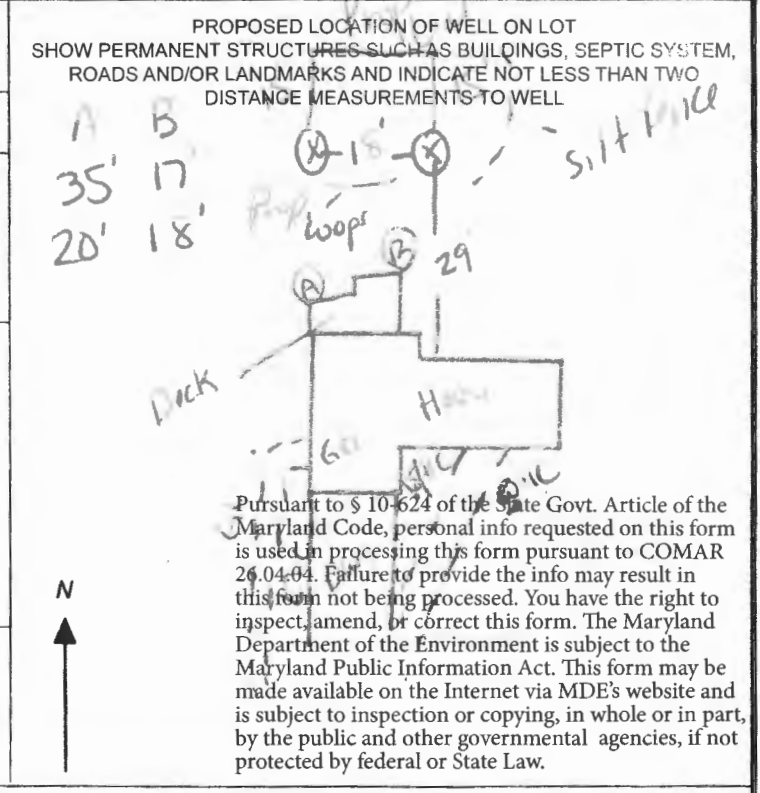 PROPOSED LOCATION OF WELL ON LOT
SHOW PERMANENT STRUCTURES SUCH AS BUILDINGS, SEPTIC SYSTEM,
ROADS AND/OR LANDMARKS AND INDICATE NOT LESS THAN TWO
DISTANCE MEASUREMENTS TO WELL
A B
35' 17'
20' 18'
X 18' X
Silt
Prop
Loops
A B 29
Deck
H
G
N
Pursuant to § 10-624 of the State Govt. Article of the
Maryland Code, personal info requested on this form
is used in processing this form pursuant to COMAR
26.04.04. Failure to provide the info may result in
this form not being processed. You have the right to
inspect, amend, or correct this form. The Maryland
Department of the Environment is subject to the
Maryland Public Information Act. This form may be
made available on the Internet via MDE's website and
is subject to inspection or copying, in whole or in part,
by the public and other governmental agencies, if not
protected by federal or State Law.